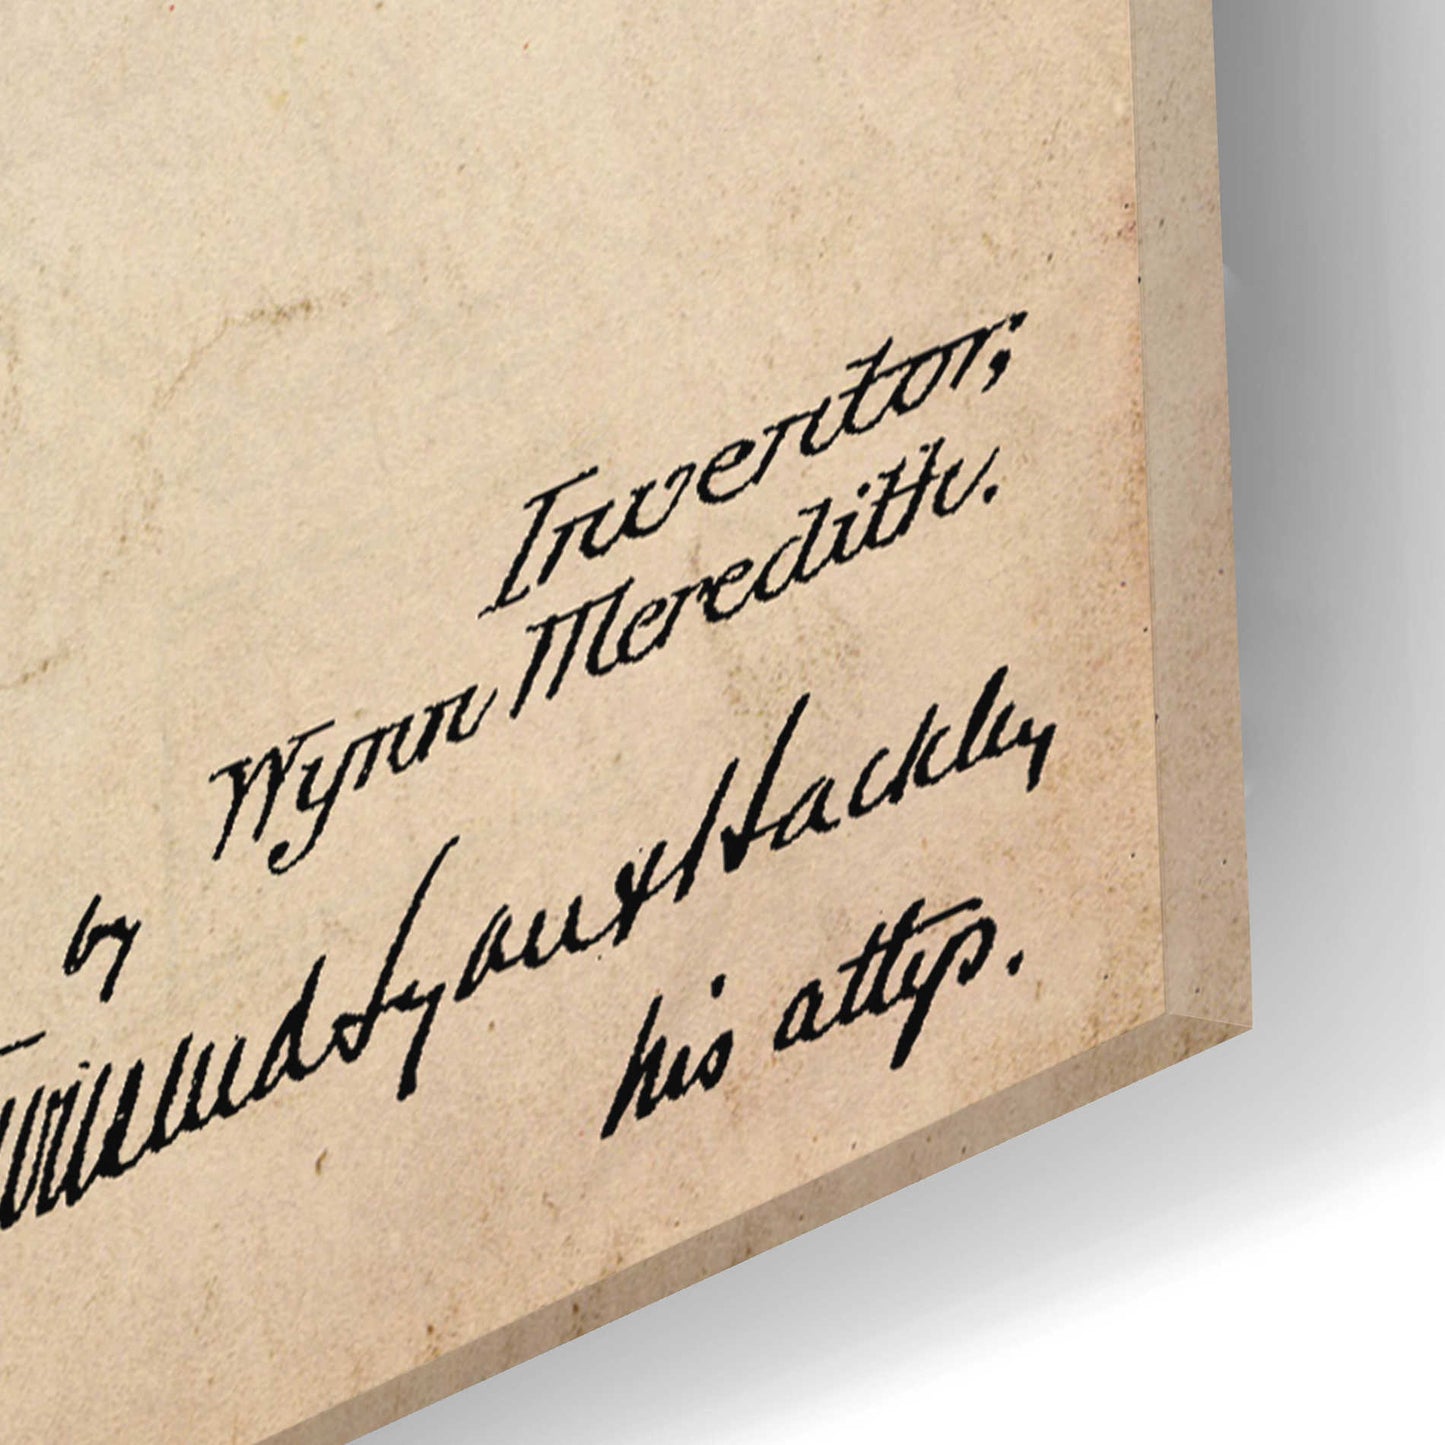 Inventor;
Wynn Meredith.
by
Townsend Lyon & Hackley
his attys.